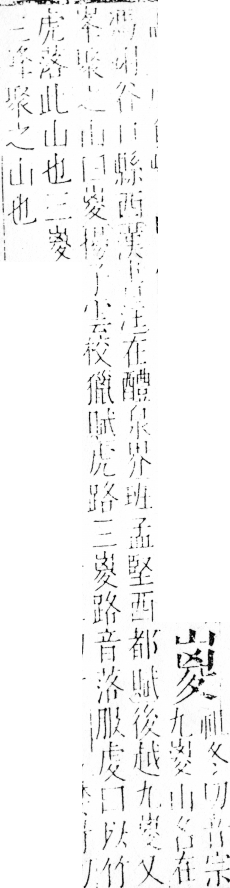 嵏
祖冬切音宗
九嵏山名在
馮翊谷口縣西漢書注在醴泉界班孟堅西都賦後越九嵏又
峯聚之山曰嵏揚子雲校獵賦虎路三嵏路音落服虔曰以竹
虎落此山也三嵏
三峯聚之山也